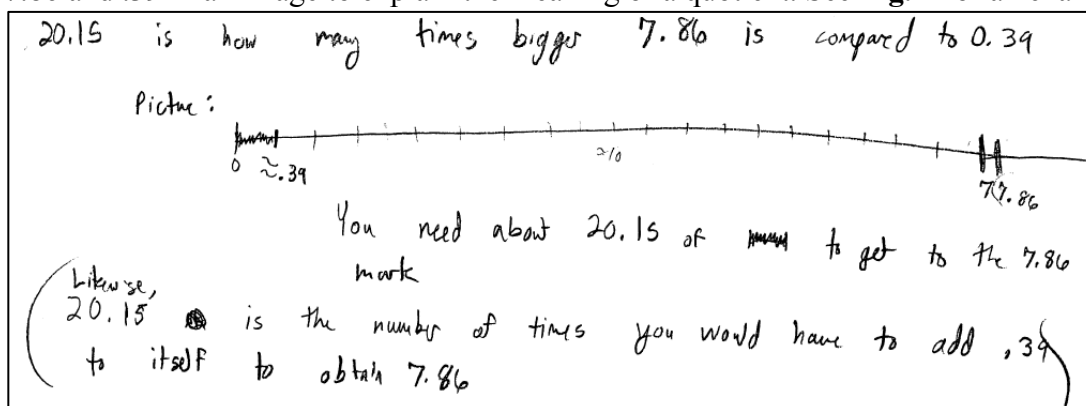 20.15 is how many times bigger 7.86 is compared to 0.39
Picture:
0 ≈.39 ≈10 7 7.86
You need about 20.15 of to get to the 7.86
mark
(Likewise,
20.15 is the number of times you would have to add .39
to itself to obtain 7.86)